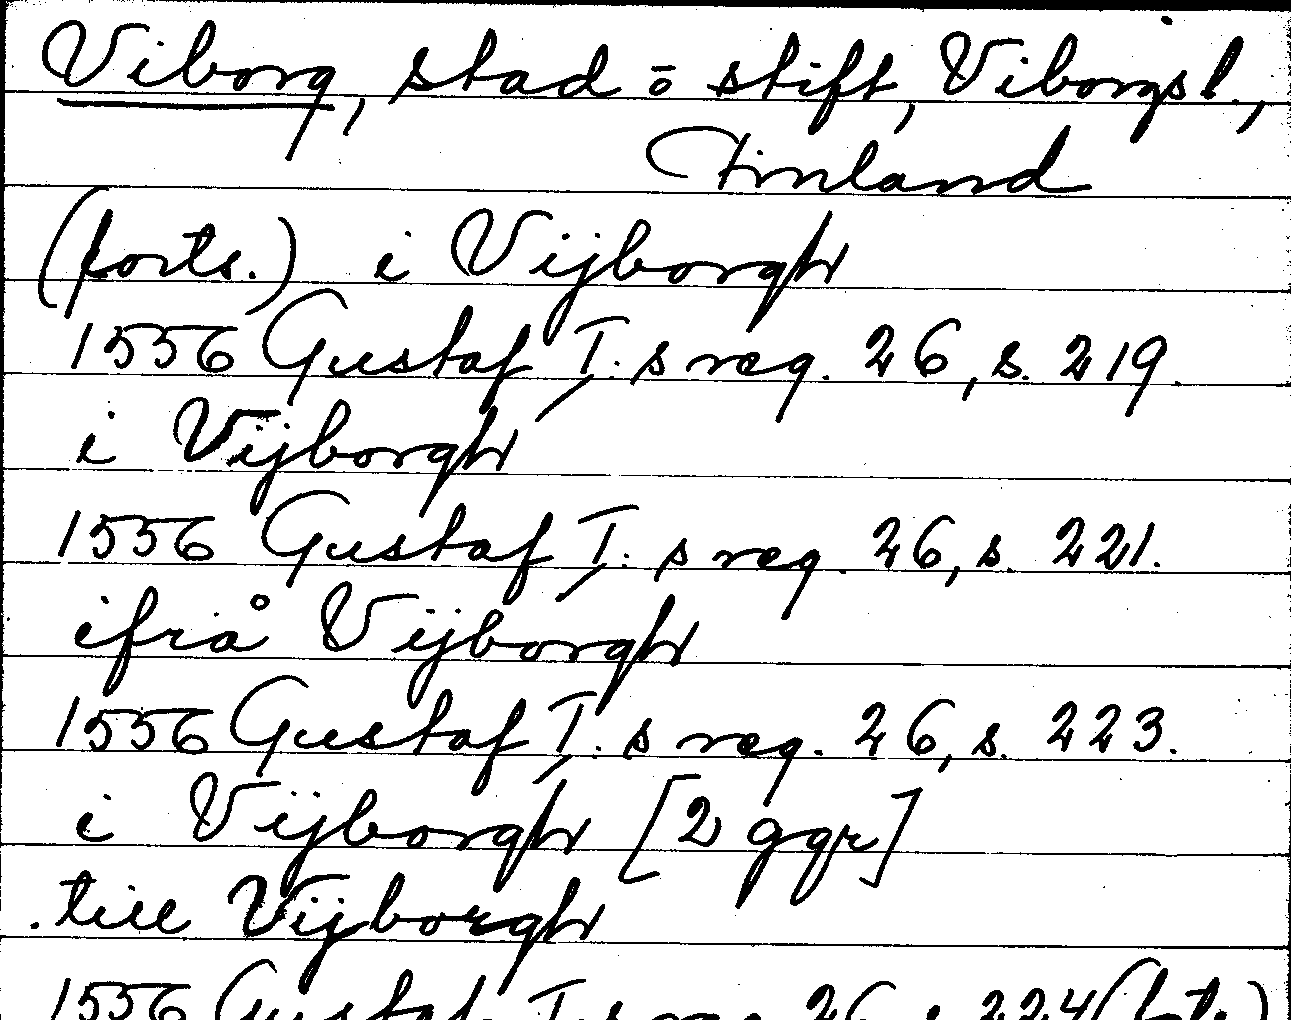 Viborg, stad o stift, Viborgs l.,
Finland
(forts.) i Vijborgh
1556 Gustaf I:s reg. 26, s. 219.
i Vijborgh
1556 Gustaf I:s reg. 26, s. 221.
ifrå Vijborgh
1556 Gustaf I:s reg. 26, s. 223.
i Vijborgh [2 ggr]
till Vijborgh
1556 Gustaf I:s reg. 26, s. 224 (forts.)